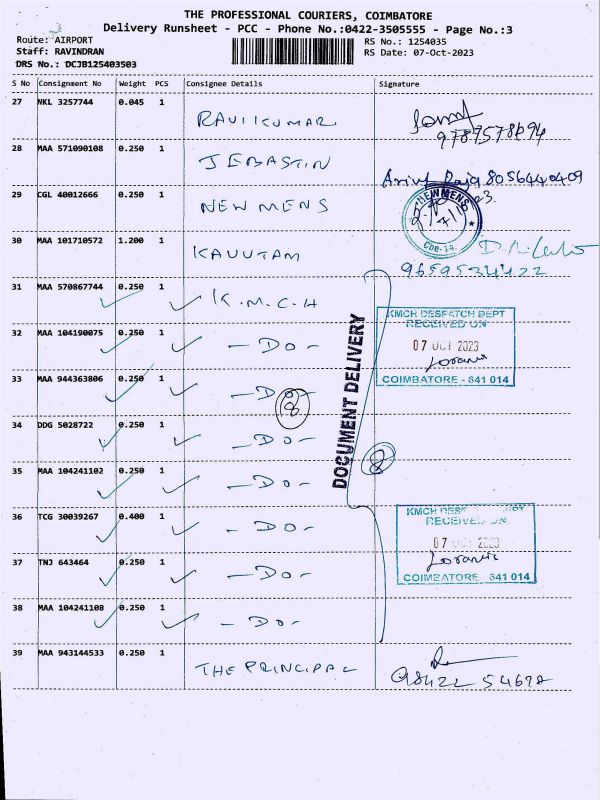 THE PROFESSIONAL COURIERS, COIMBATORE
Delivery Runsheet - PCC - Phone No.:0422-3505555 - Page No.:3
Route: AIRPORT
RS No.: 1254035
Staff: RAVINDRAN
RS Date: 07-Oct-2023
DRS No.: DCJB125403503
S No Consignment No Weight PCS Consignee Details Signature
27 NKL 3257744 0.045 1 RAVIKUMAR
28 MAA 571090108 0.250 1 JEBASTIN 8056440409
29 CGL 40012666 0.250 1 NEW MENS
NEWMENS
30 MAA 101710572 1.200 1 KAVUTAM
9659534422
31 MAA 570867744 0.250 1 K.M.C.H
KMCH DESPATCH DEPT
RECEIVED ON
32 MAA 104190075 0.250 1 - DO -
07 OCT 2023
COIMBATORE - 641 014
33 MAA 944363806 0.250 1 - DO -
8
DOCUMENT DELIVERY
34 DDG 5028722 0.250 1 - DO -
8
35 MAA 104241102 0.250 1 - DO -
36 TCG 30039267 0.400 1 - DO -
KMCH DESPATCH DEPT
RECEIVED ON
07 OCT 2023
37 TNJ 643464 0.250 1 - DO -
COIMBATORE - 641 014
38 MAA 104241108 0.250 1 - DO -
39 MAA 943144533 0.250 1 THE PRINCIPAL
98422 54698